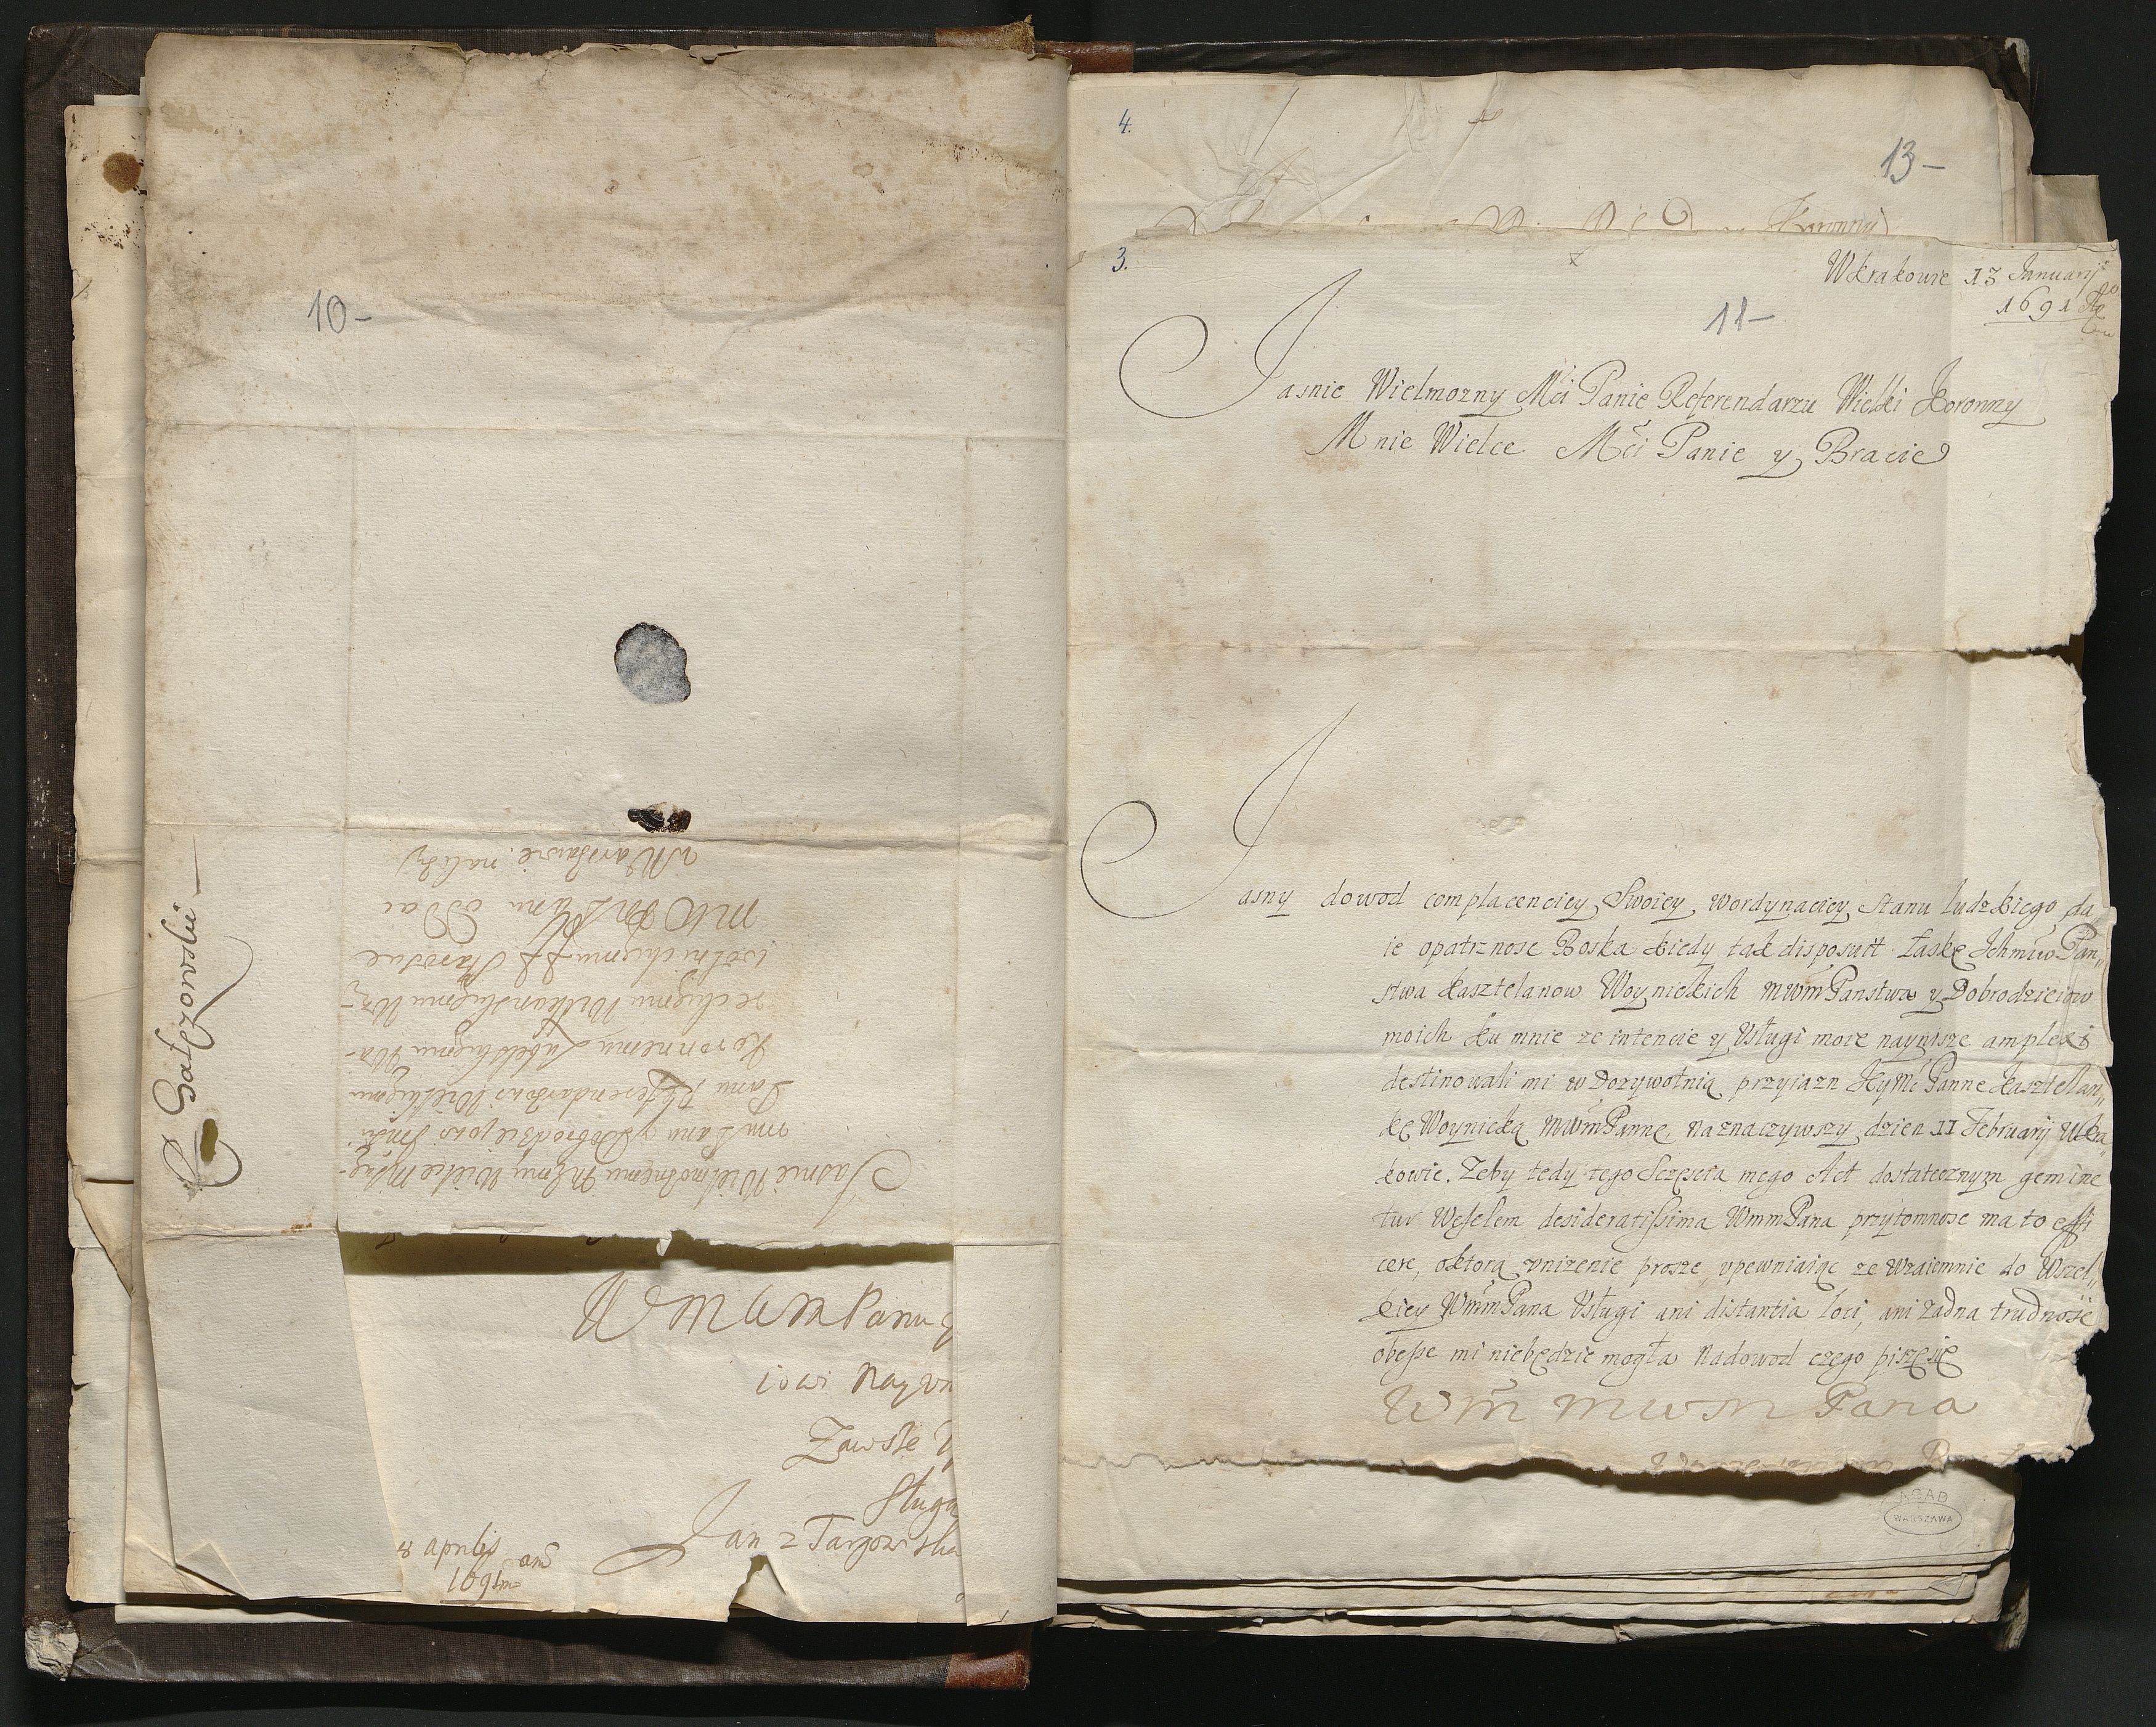 10-
w Warszawie należy
MWMPanu oddac
wolnickiemu Staroscie
reckiemu Wilkomirskiemu
Koronnemu Lubelskiemu
Panu Referendarzowi Wielkiemu
mu Panu y Dobrodziejowi
Jasnie Wielmożnemu Memu Wielce Mciwe-
P Gałęzowski
WMMWMPanu
iowi Nayzn
Zawsze
Sługa
Jan z Targowiska
8 aprilis
1691
4.
13-
Koronny
3.
WKrakowie 13 Januarij
1691
11-
Jasnie Wielmozny Mći Panie Referendarzu Wielki Koronny
Mnie Wielce Mći Panie y Bracie
Jasny dowod complacenciey Swoiey Wordynaciey stanu ludzkiego da„
ie opatrznosc Boska kiedy tak disposuit łaskę Ichmćiow Pan„
stwa Kasztelanow Woynickich mwm Panstwa y Dobrodzieiow
moich ku mnie ze intencie y Usługi moie nayniższe amplexi
destinowali mi w Dozywotnią przyiazn Jeymć Pannę Kasztelan„
kę Woynicką mwmPannę. naznaczywszy dzien 11 Februarij WKra„
kowie. Zeby tedy tego Sczęscia mego Act dostatecznym gemine
tur Weselem desideratissima WmmPana przytomnosc ma to effi
cere, oktorą zniżenie proszę, upewniaiąc ze Wzaiemnie do Wszel„
kiey WmmPana Usługi ani distantia loci, ani żadna trudnosc
obesse mi niebędzie mogła Nadowod czego piszę się
Wm mwm Pana
AGAD
WARSZAWA